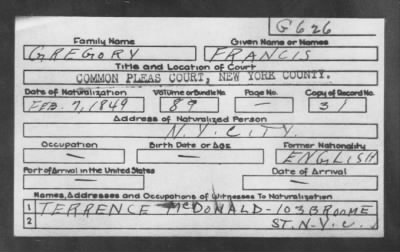 G626
Family Name Given Name or Names
GREGORY FRANCIS
Title and Location of Court
COMMON PLEAS COURT, NEW YORK COUNTY.
Date of Naturalization Volume or Bundle No. Page No. Copy of Record No.
FEB. 7, 1849 89 — 31
Address of Naturalized Person
N.Y. CITY
Occupation Birth Date or Age Former Nationality
— — ENGLISH
Port of Arrival in the United States Date of Arrival
— —
Names, Addresses and Occupations of Witnesses To Naturalization
1 TERRENCE McDONALD-103 BROOME
2 ST. N.Y.C.